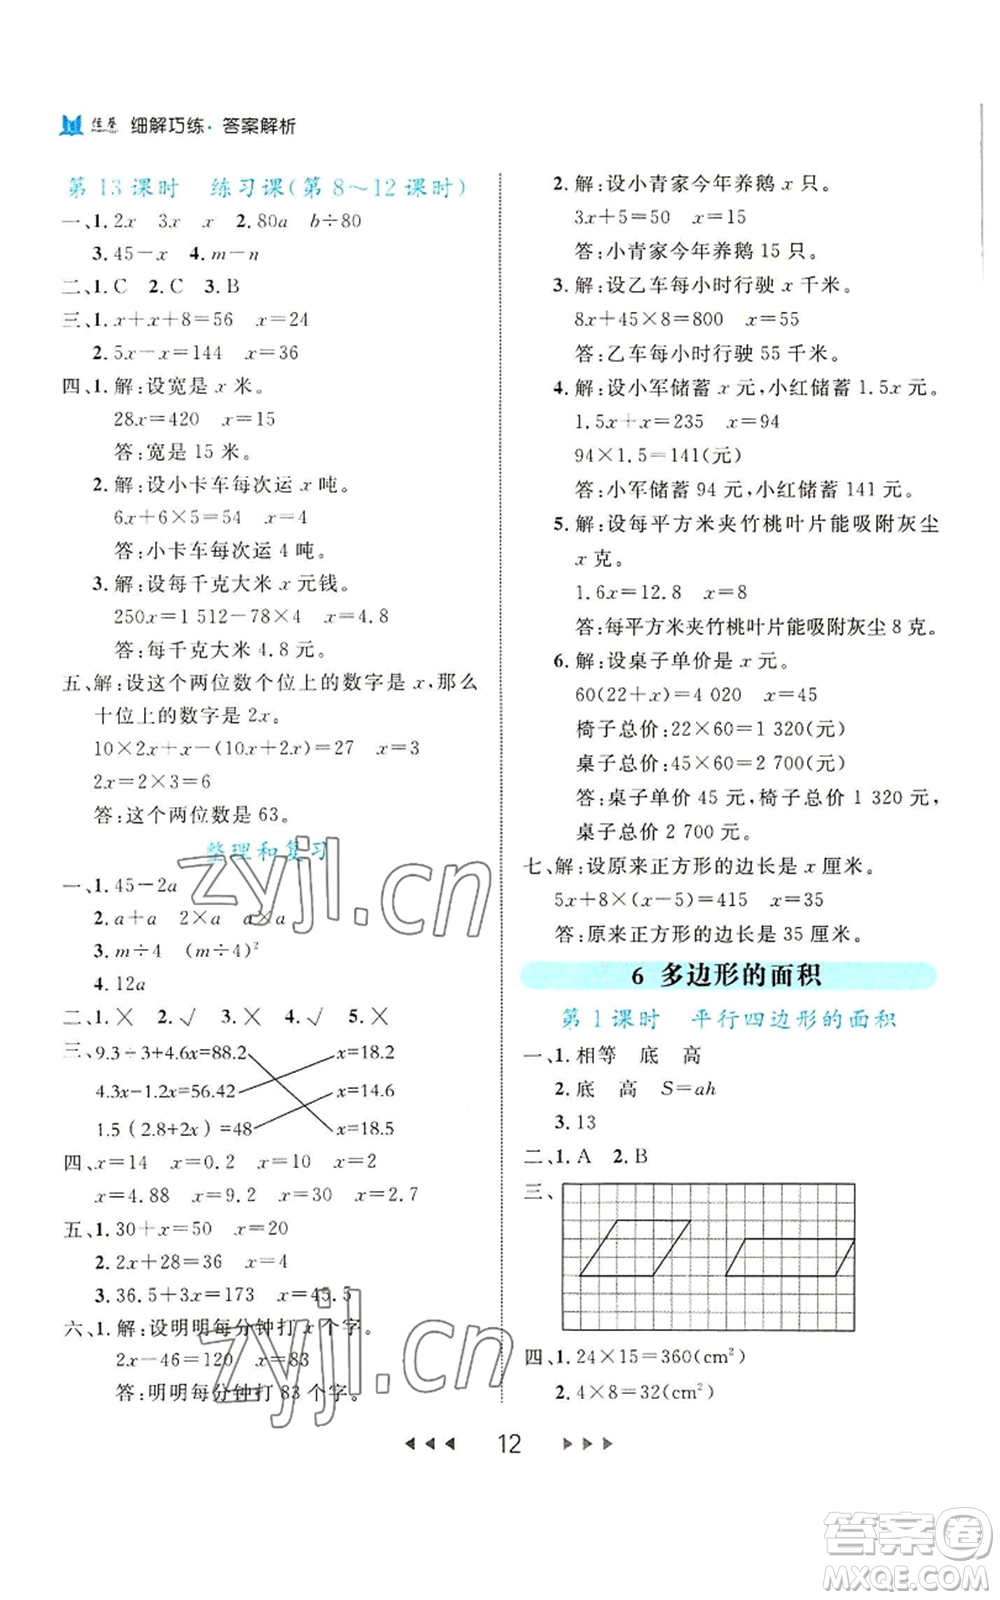 佳卷 细解巧练·答案解析
第13课时 练习课(第8～12课时)
一、1.2x 3x x 2.80a b÷80
3.45－x 4.m－n
二、1.C 2.C 3.B
三、1.x+x+8=56 x=24
2.5x－x=144 x=36
四、1.解:设宽是 x 米。
28x=420 x=15
答:宽是 15 米。
2.解:设小卡车每次运 x 吨。
6x+6×5=54 x=4
答:小卡车每次运 4 吨。
3.解:设每千克大米 x 元钱。
250x=1 512－78×4 x=4.8
答:每千克大米 4.8 元。
五、解:设这个两位数个位上的数字是 x,那么
十位上的数字是 2x。
10×2x+x－(10x+2x)=27 x=3
2x=2×3=6
答:这个两位数是 63。
整理和复习
一、1.45－2a
2.a+a 2×a a×a
3.m÷4 (m÷4)²
4.12a
二、1.× 2.√ 3.√ 4.× 5.×
三、9.3÷3+4.6x=88.2 x=18.2
4.3x-1.2x=56.42 x=14.6
1.5(2.8+2x)=48 x=18.5
四、x=14 x=0.2 x=10 x=2
x=4.88 x=9.2 x=30 x=2.7
五、1.30+x=50 x=20
2.2x+28=36 x=4
3.36.5+3x=173 x=45.5
六、1.解:设明明每分钟打 x 个字。
2x－46=120 x=83
答:明明每分钟打 83 个字。
2.解:设小青家今年养鹅 x 只。
3x+5=50 x=15
答:小青家今年养鹅 15 只。
3.解:设乙车每小时行驶 x 千米。
8x+45×8=800 x=55
答:乙车每小时行驶 55 千米。
4.解:设小军储蓄 x 元,小红储蓄 1.5x 元。
1.5x+x=235 x=94
94×1.5=141(元)
答:小军储蓄 94 元,小红储蓄 141 元。
5.解:设每平方米夹竹桃叶片能吸附灰尘
x 克。
1.6x=12.8 x=8
答:每平方米夹竹桃叶片能吸附灰尘 8 克。
6.解:设桌子单价是 x 元。
60(22+x)=4 020 x=45
椅子总价:22×60=1 320(元)
桌子总价:45×60=2 700(元)
答:桌子单价 45 元,椅子总价 1 320 元,
桌子总价 2 700 元。
七、解:设原来正方形的边长是 x 厘米。
5x+8×(x－5)=415 x=35
答:原来正方形的边长是 35 厘米。
6 多边形的面积
第1课时 平行四边形的面积
一、1.相等 底 高
2.底 高 S=ah
3.13
二、1.A 2.B
三、
四、1.24×15=360(cm²)
2.4×8=32(cm²)
12
zyjl.cn
zyjl.cn
答案卷
MXQE.COM